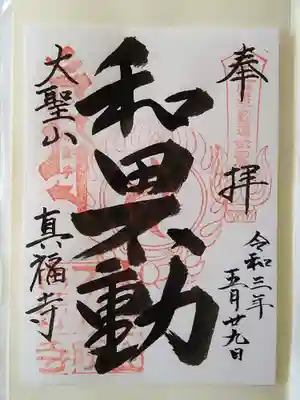 奉拝
令和三年
五月廿九日
和田不動
大聖山
真福寺